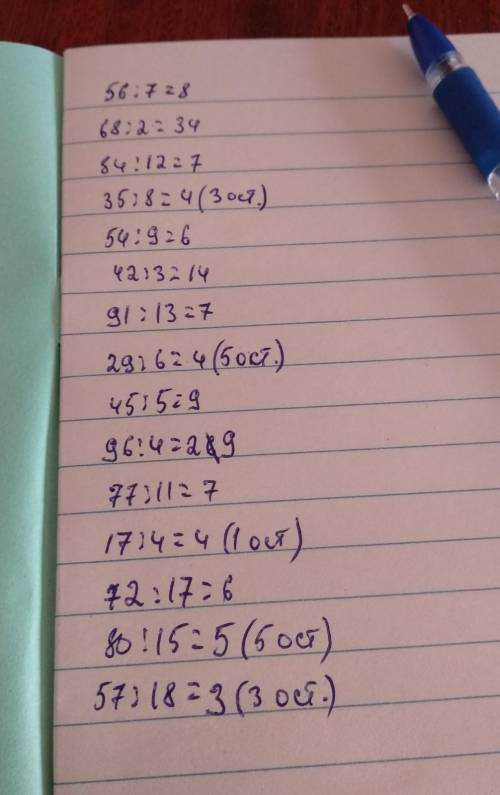 56:7=8
68:2=34
84:12=7
35:8=4(3ост.)
54:9=6
42:3=14
91:13=7
29:6=4(5ост.)
45:5=9
96:4=29
77:11=7
17:4=4(1ост)
72:17=6
80:15=5(5ост)
57:18=3(3ост.)